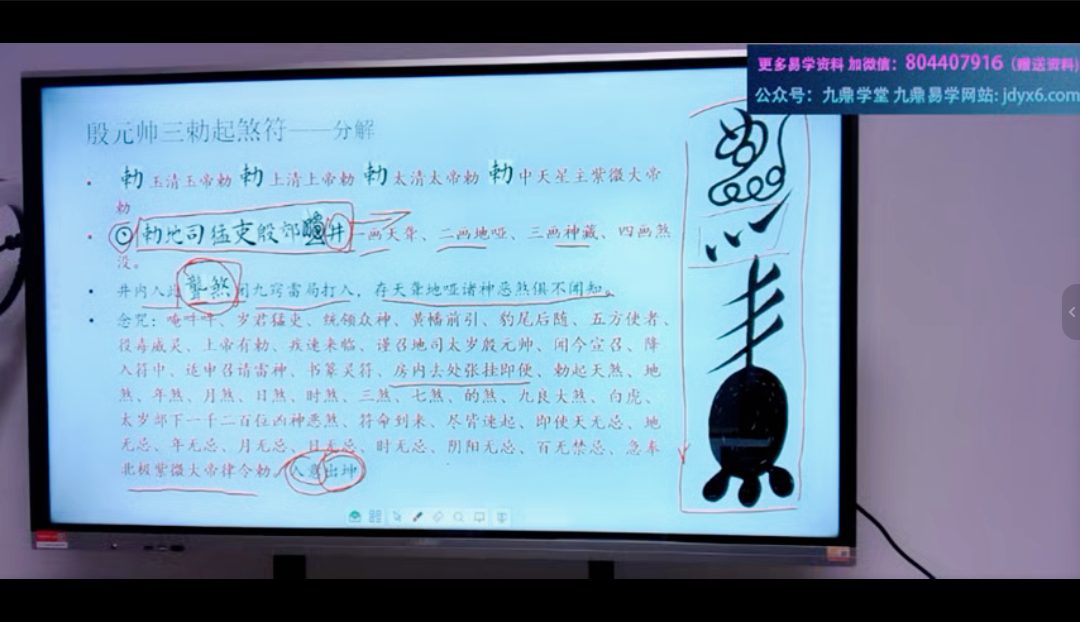 更多易学资料 加微信：804407916（赠送资料）
公众号：九鼎学堂 九鼎易学网站: jdyx6.com
殷元帅三勅起煞符——分解
勅 玉清玉帝勅 勅 上清上帝勅 勅 太清太帝勅 勅 中天星主紫微大帝
勅
勅地司猛吏殷郊 井 一画天聋、二画地哑、三画神藏、四画煞
没。
井内入此 聻煞 闭九窍雷局打入，存天聋地哑诸神恶煞俱不闻知。
念咒：唵吽吽、岁君猛吏、统领众神、黄幡前引、豹尾后随、五方使者、
役毒威灵、上帝有勅、疾速来临、谨召地司太岁殷元帅、闻今宣召、降
入符中、返申召请雷神、书篆灵符、房内去处张挂即便、勅起天煞、地
煞、年煞、月煞、日煞、时煞、三煞、七煞、的煞、九良大煞、白虎、
太岁部下一千二百位凶神恶煞、符命到来、尽皆速起、即使天无忌、地
无忌、年无忌、月无忌、日无忌、时无忌、阴阳无忌、百无禁忌、急奉
北极紫微大帝律令勅。入意出坤